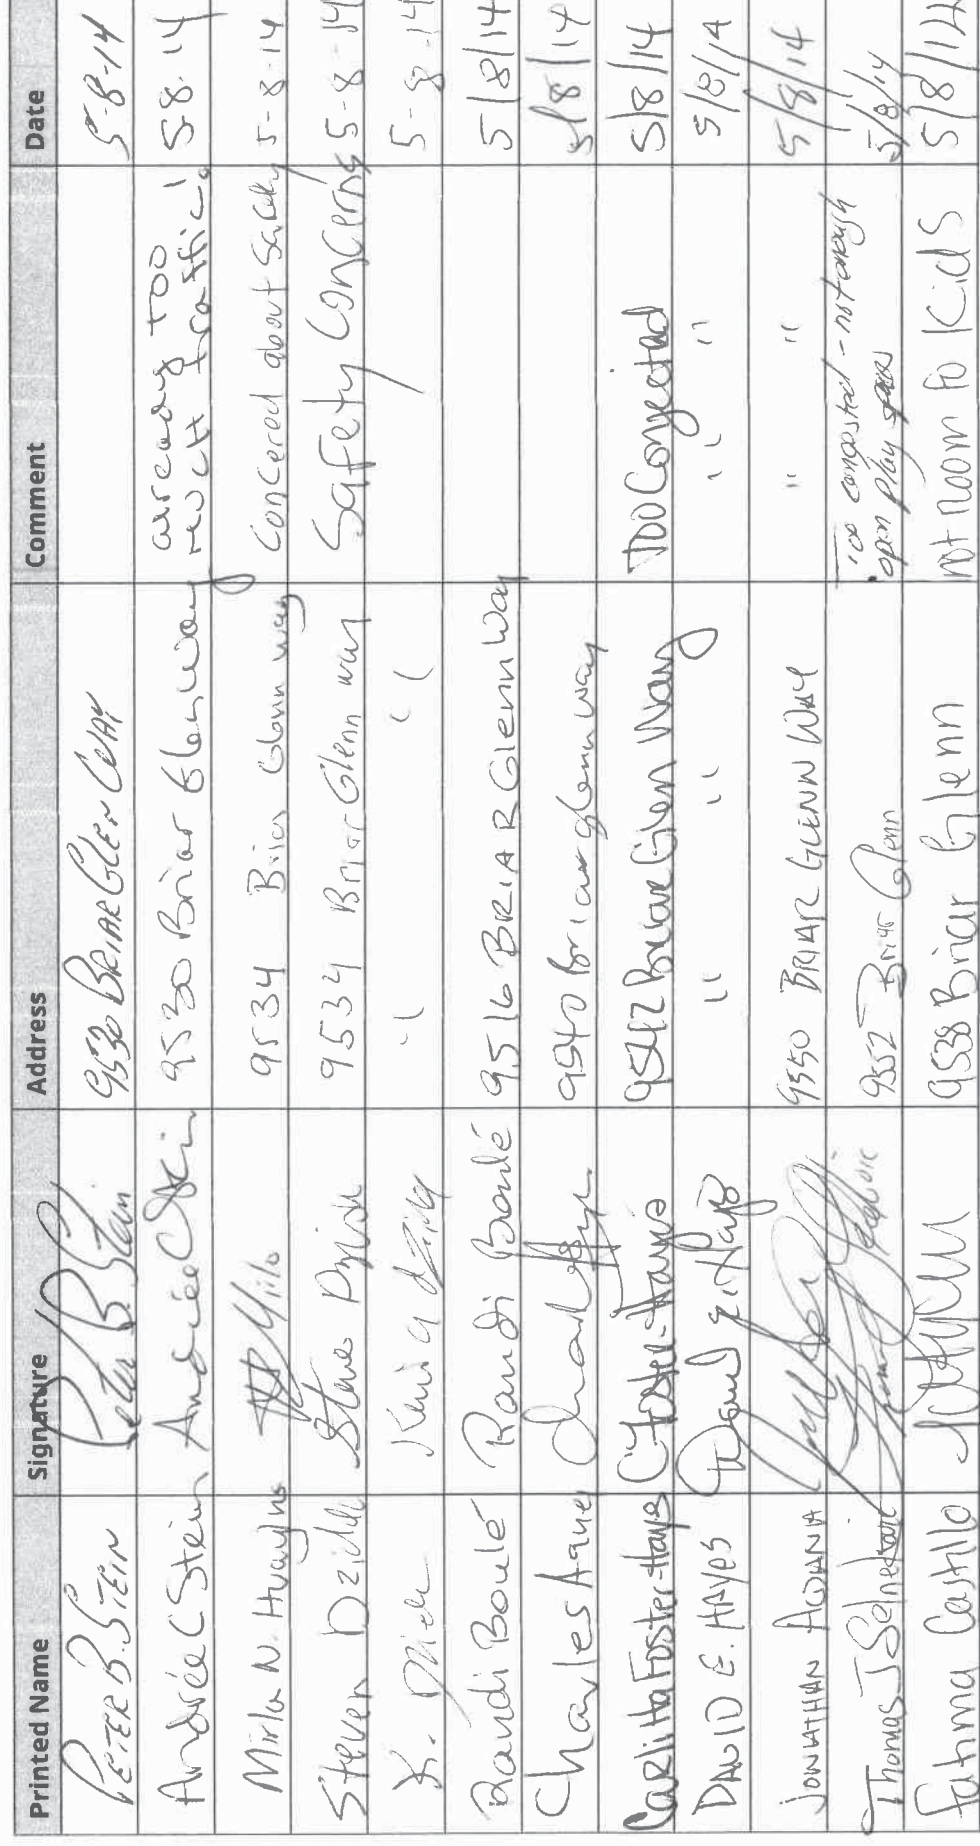 Printed Name Signature Address Comment Date
PETER B. STEIN Peter B. Stein 9530 BRIAR GLEN WAY 5-8-14
Andrée C Stein Andrée C Stein 9530 Briar Glen Way already TOO
much traffic! 5-8-14
Mirla N. 9534 Briar Glenn way Concered about Safety 5-8-14
Steven Steve 9534 Briar Glenn way Safety Concerns 5-8-14
K. " " 5-8-14
Randi Boulé Randi Boulé 9516 BRIAR Glenn Way 5/8/14
Charles 9540 Briar glenn way 5/8/14
Carlita Foster-Hayes C Foster-Hayes 9542 Briar Glen Way TOO Congested 5/8/14
DAVID E. HAYES David E. Hayes " " " " 5/8/14
JONATHAN 9550 BRIAR GLENN WAY " " 5/8/14
Thomas J 9552 Briar Glenn Too congested - not enough
open play 5/8/14
Fatima Castillo 9538 Briar Glenn not room fo Kids 5/8/14